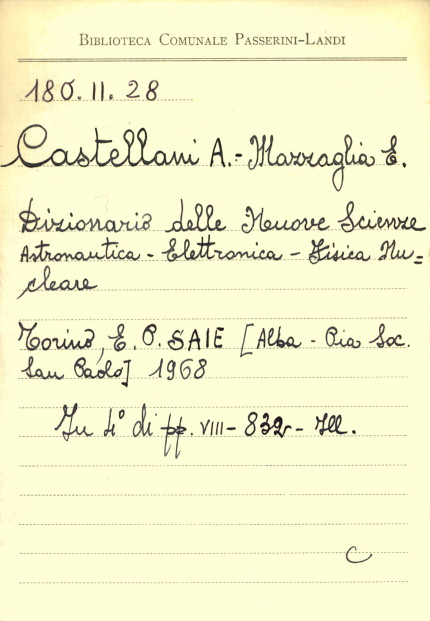 BIBLIOTECA COMUNALE PASSERINI-LANDI
180.II.28
Castellani A.- Mazzaglia E.
Dizionario delle Nuove Scienze
Astronautica - Elettronica - Fisica Nu=
cleare
Torino, E. P. SAIE [Alba - Pia Soc.
San Paolo] 1968
In 4° di pp. VIII- 832- Ill.
C